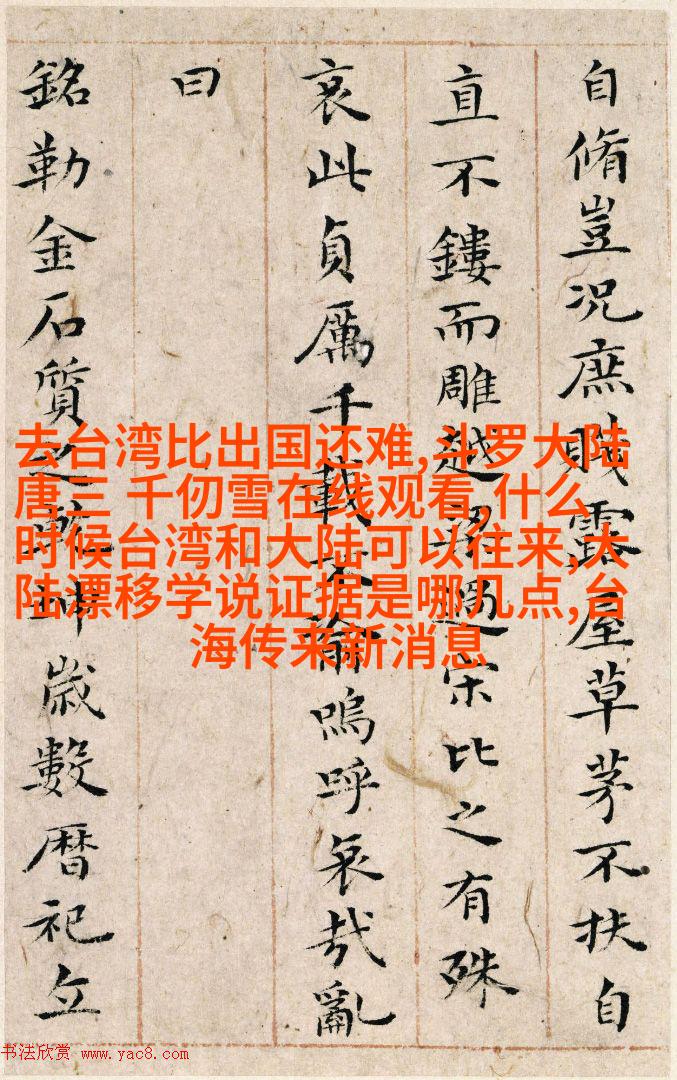 自脩豈況庶賤露屋草茅不扶自
直不鏤而雕越梁過宋比之有殊
哀此貞厲千載不渝嗚呼哀哉亂
曰
銘勒金石質之乾坤歲數暦祀立
去台湾比出国还难,斗罗大陆
唐三 千仞雪在线观看,什么
时候台湾和大陆可以往来,大
陆漂移学说证据是哪几点,台
海传来新消息
书法欣赏 www.yac8.com